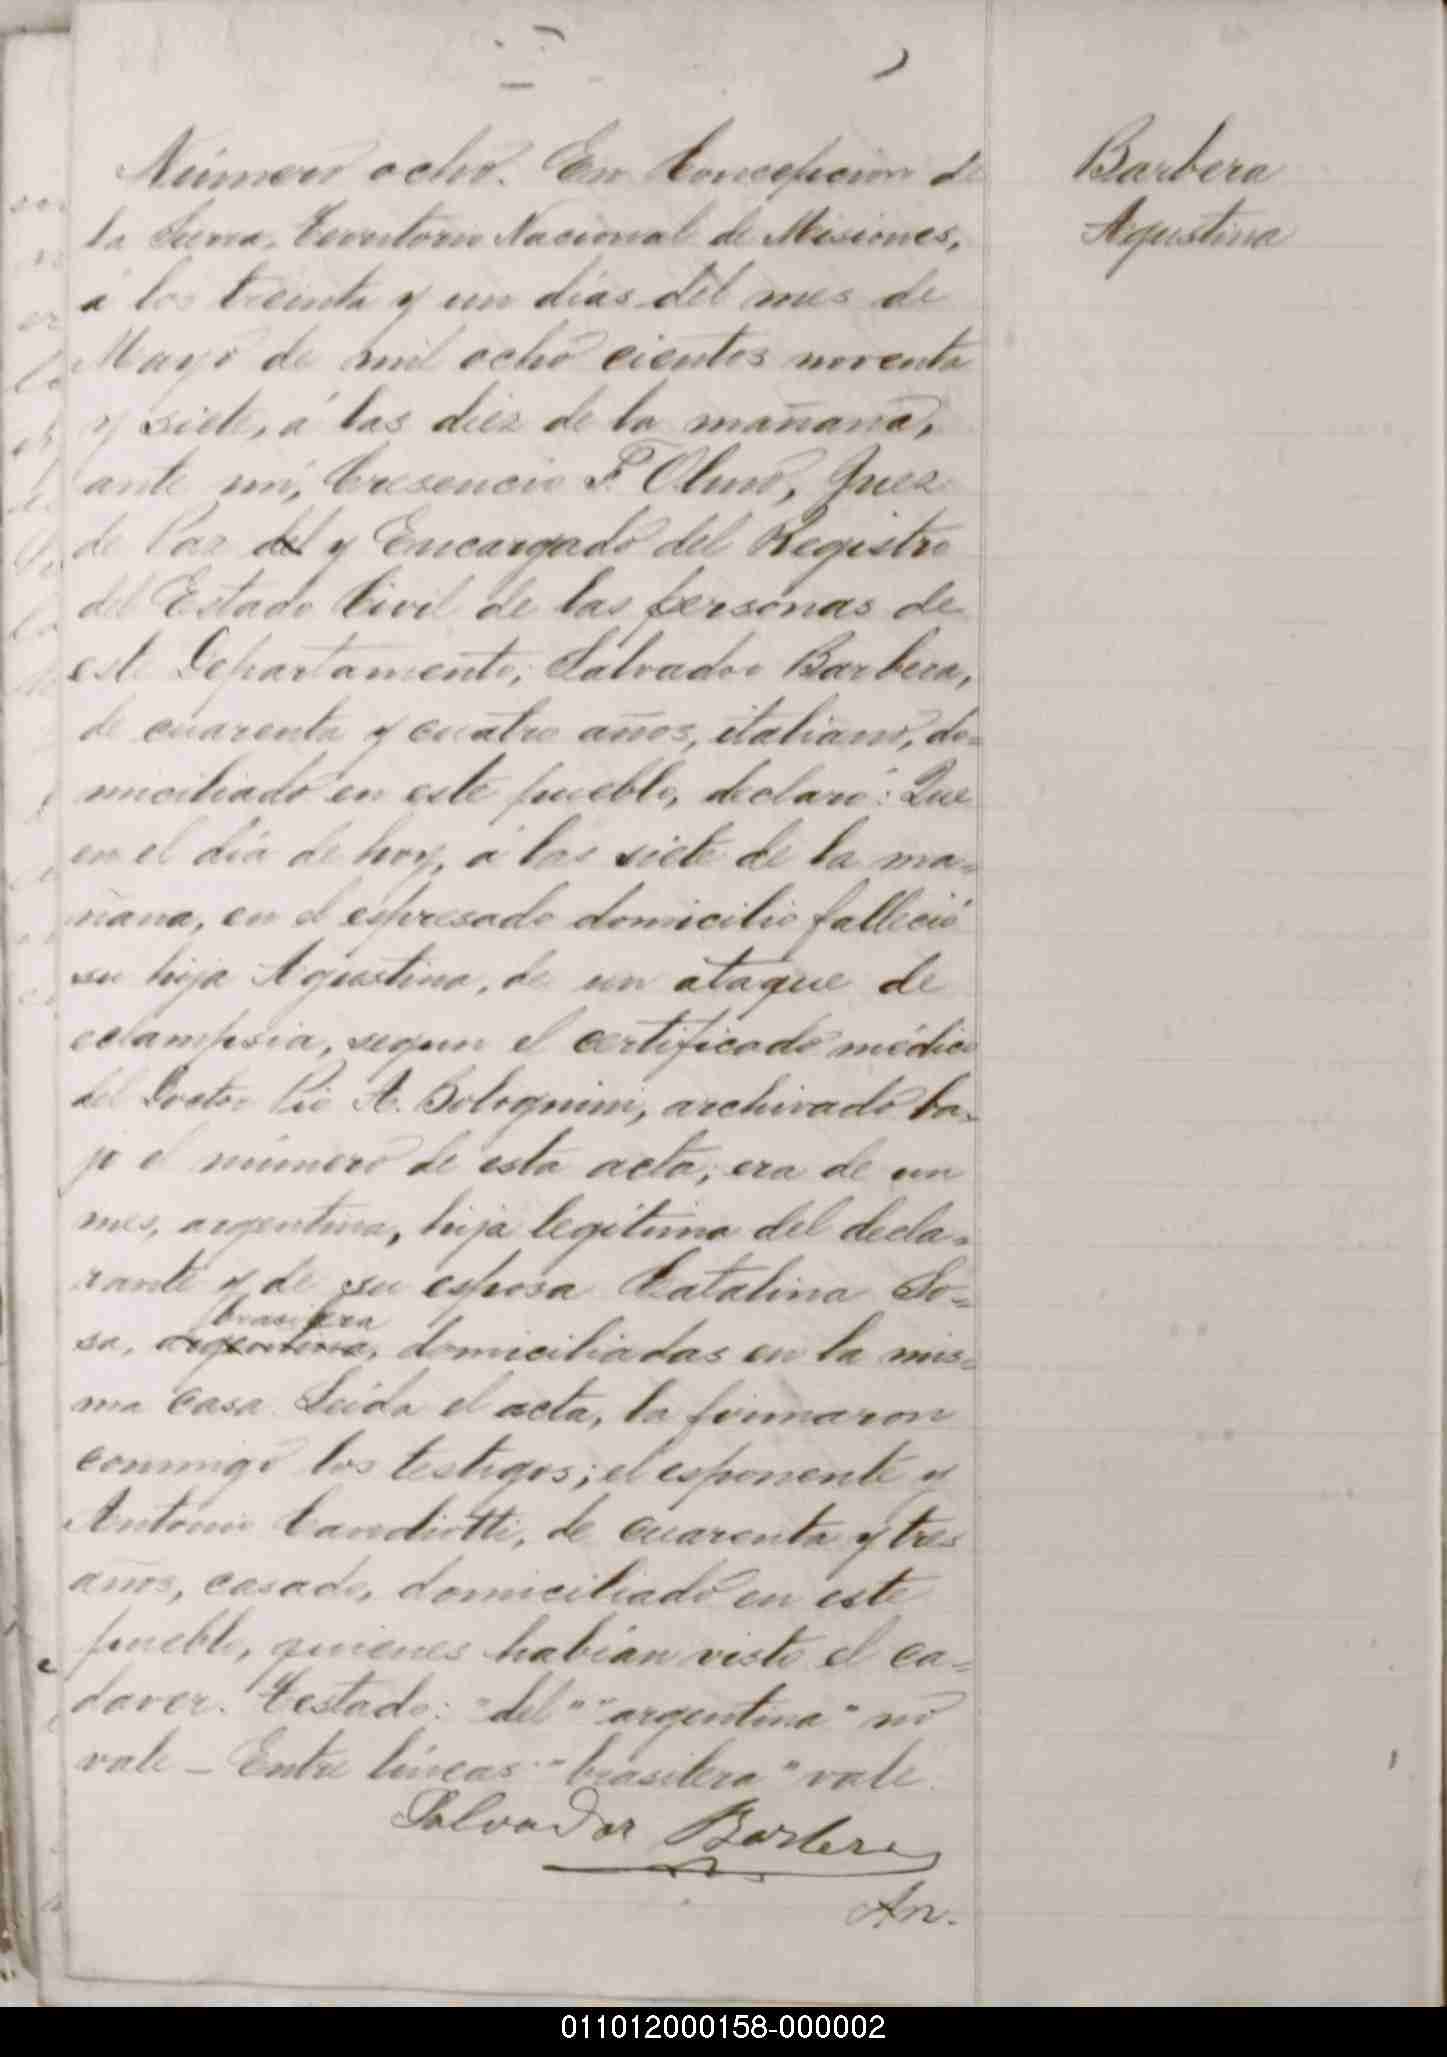 Número ocho. En Concepcion de
la Sierra, Territorio Nacional de Misiones,
á los treinta y un días del mes de
Mayo de mil ocho cientos noventa
y siete, á las diez de la mañana,
ante mí, Cresencio F. Olmo, Juez
de Paz del y Encargado del Registro
del Estado Civil de las personas de
este Departamento; Salvador Barbera,
de cuarenta y cuatro años, italiano, do=
miciliado en este pueblo, declaró: Que
en el día de hoy, á las siete de la ma=
ñana, en el espresado domicilio falleció
su hija Agustina, de un ataque de
eclampsia, segun el certificado médico
del Doctor Pio A. Bolognini, archivado ba=
jo el número de esta acta; era de un
mes, argentina, hija legítima del decla=
rante y de su esposa Catalina So=
brasilera
sa, argentina, domiciliadas en la mis=
ma casa. Leída el acta, la firmaron
conmigo los testigos; el esponente y
Antonio Candiotti, de cuarenta y tres
años, casado, domiciliado en este
pueblo, quienes habían visto el ca=
daver. Testado: "del" "argentina" no
vale - Entre líneas "brasilera" vale.
Salvador Barbera
An.
Barbera
Agustina
011012000158-000002